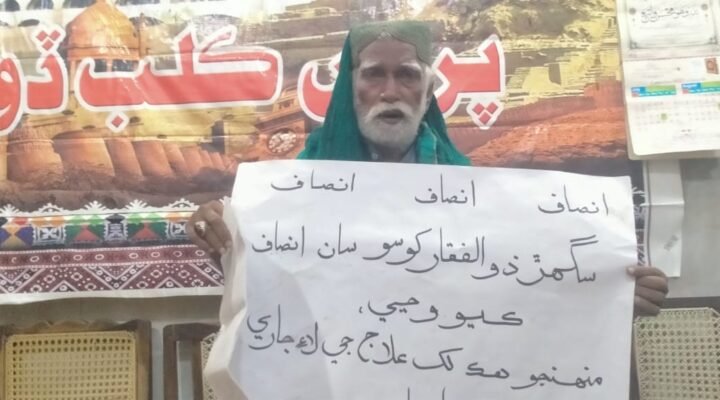 پريس ڪلب ڏو
انصاف انصاف انصاف
سگهڙ ذوالفقار کوسو سان انصاف
ڪيو وڃي،
منهنجو هڪ لک علاج جي لاءِ جاري